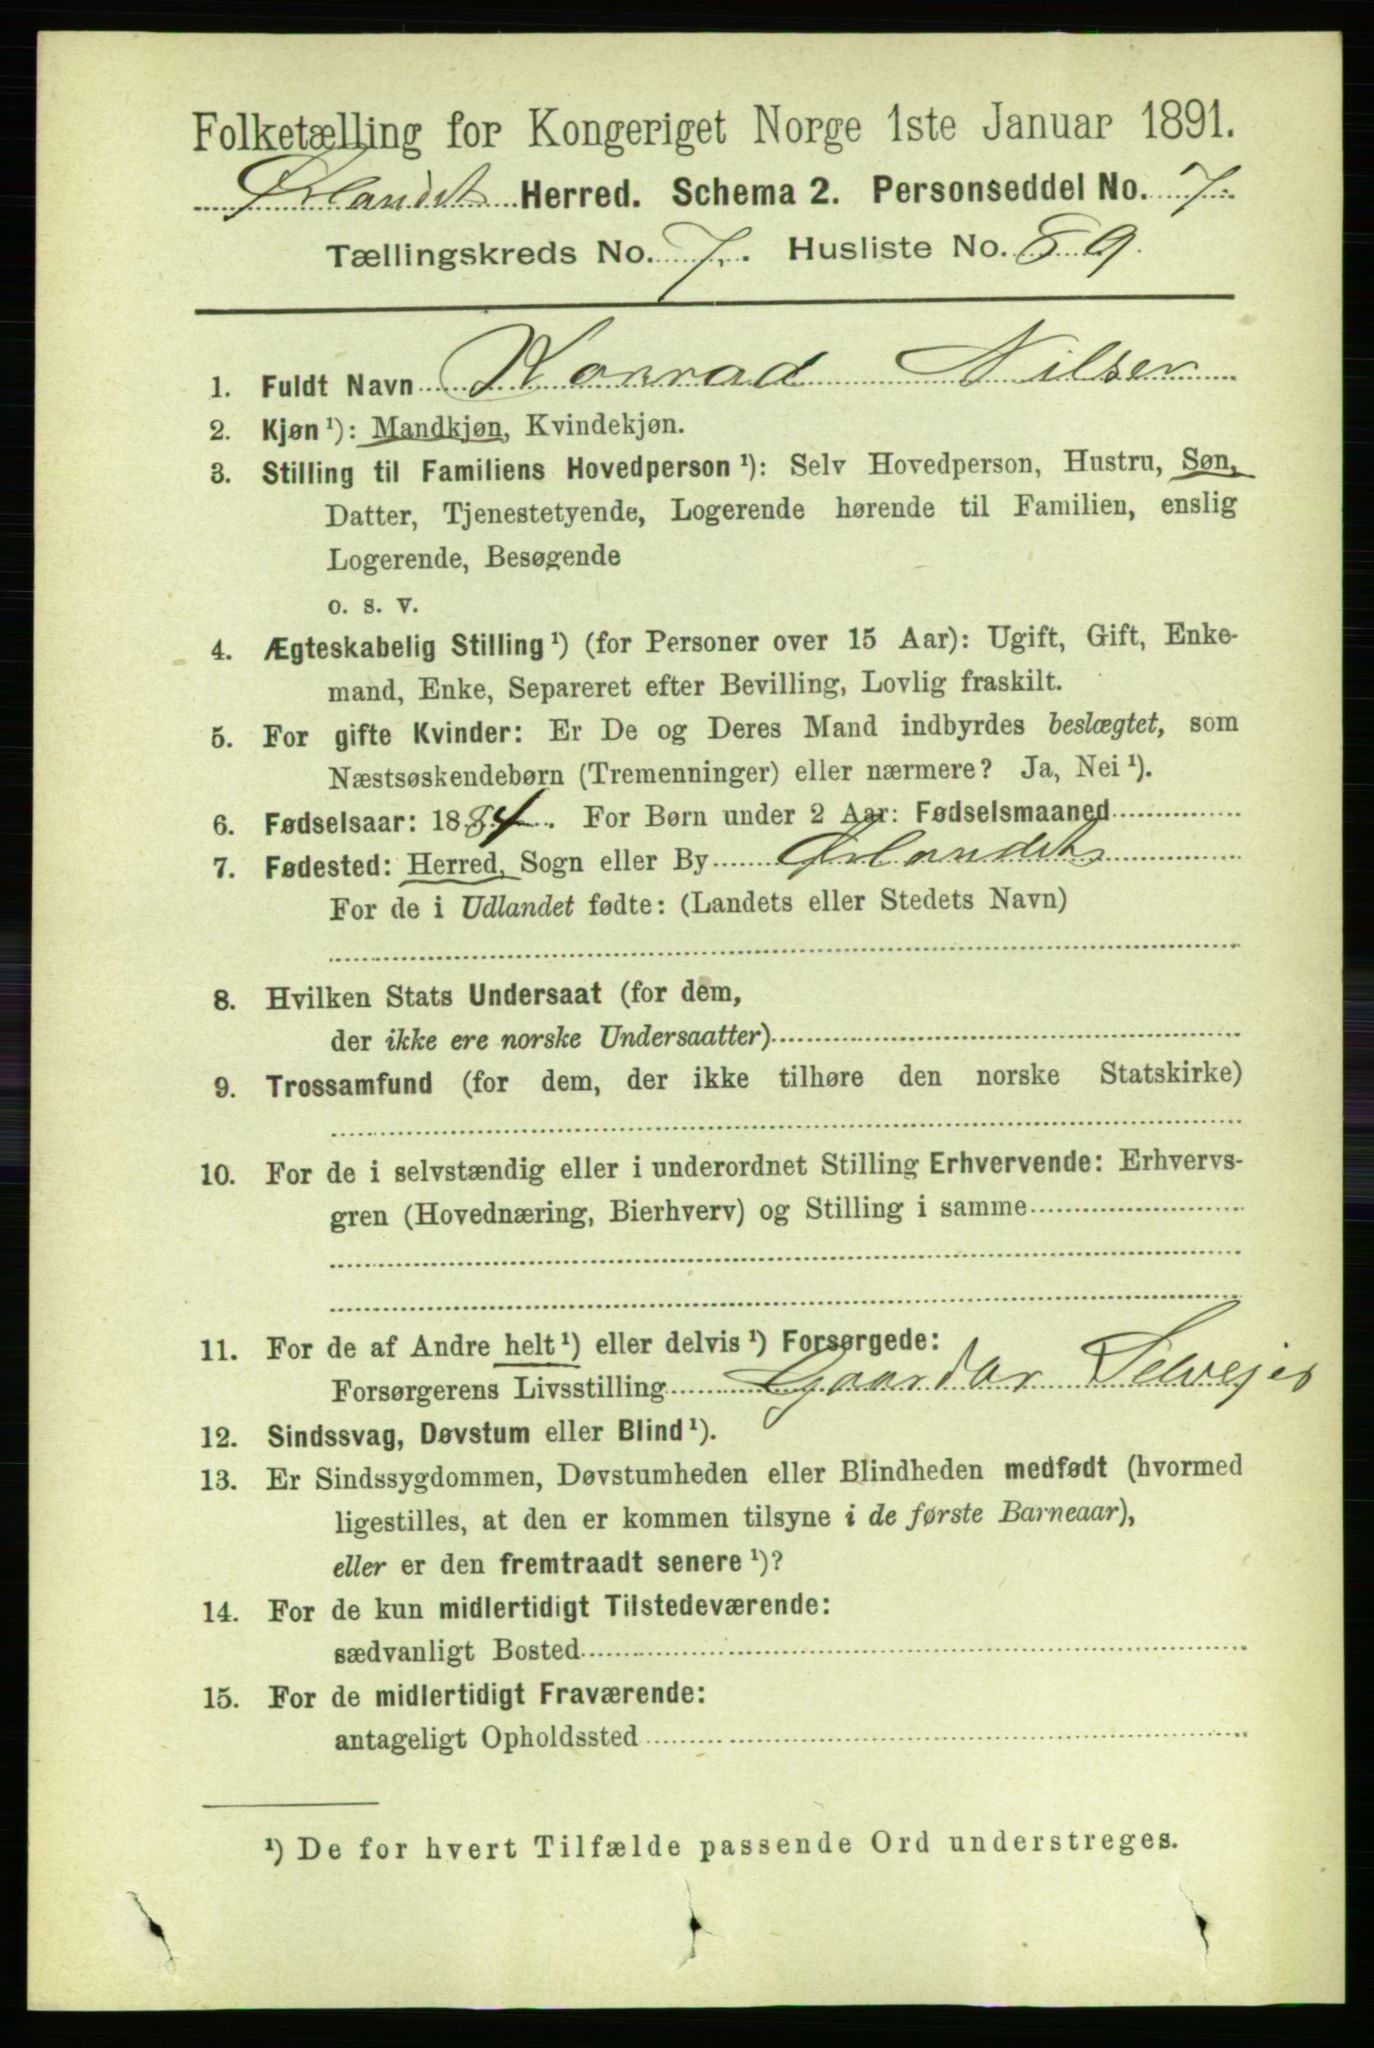 Folketælling for Kongeriget Norge 1ste Januar 1891.
Ørlandets Herred. Schema 2. Personseddel No. 7.
Tællingskreds No. 7. Husliste No. 59.
1. Fuldt Navn Konrad Nilsen
2. Kjøn ¹): Mandkjøn, Kvindekjøn.
3. Stilling til Familiens Hovedperson ¹): Selv Hovedperson, Hustru, Søn,
Datter, Tjenestetyende, Logerende hørende til Familien, enslig
Logerende, Besøgende
o. s. v.
4. Ægteskabelig Stilling ¹) (for Personer over 15 Aar): Ugift, Gift, Enke-
mand, Enke, Separeret efter Bevilling, Lovlig fraskilt.
5. For gifte Kvinder: Er De og Deres Mand indbyrdes beslægtet, som
Næstsøskendebørn (Tremenninger) eller nærmere? Ja, Nei ¹).
6. Fødselsaar: 1884. For Børn under 2 Aar: Fødselsmaaned
7. Fødested: Herred, Sogn eller By Ørlandets
For de i Udlandet fødte: (Landets eller Stedets Navn)
8. Hvilken Stats Undersaat (for dem,
der ikke ere norske Undersaatter)
9. Trossamfund (for dem, der ikke tilhøre den norske Statskirke)
10. For de i selvstændig eller i underordnet Stilling Erhvervende: Erhvervs-
gren (Hovednæring, Bierhverv) og Stilling i samme
11. For de af Andre helt ¹) eller delvis ¹) Forsørgede:
Forsørgerens Livsstilling Gaardbr Selvejer
12. Sindssvag, Døvstum eller Blind ¹).
13. Er Sindssygdommen, Døvstumheden eller Blindheden medfødt (hvormed
ligestilles, at den er kommen tilsyne i de første Barneaar),
eller er den fremtraadt senere ¹)?
14. For de kun midlertidigt Tilstedeværende:
sædvanligt Bosted
15. For de midlertidigt Fraværende:
antageligt Opholdssted
¹) De for hvert Tilfælde passende Ord understreges.